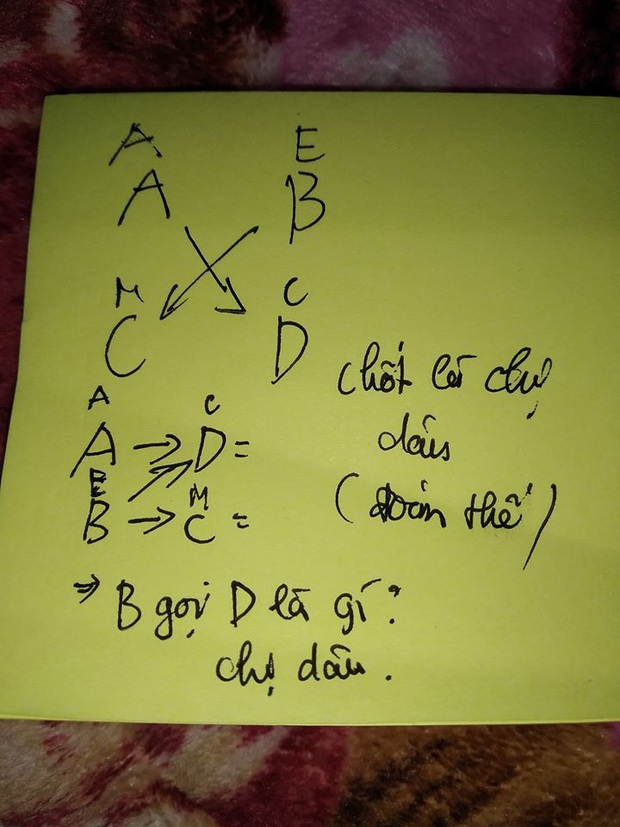 A E
A B
M C
C D
A C
A → D =
E M
B → C =
chốt là chị
dâu
(đoán thế)
⇒ B gọi D là gì?
chị dâu.